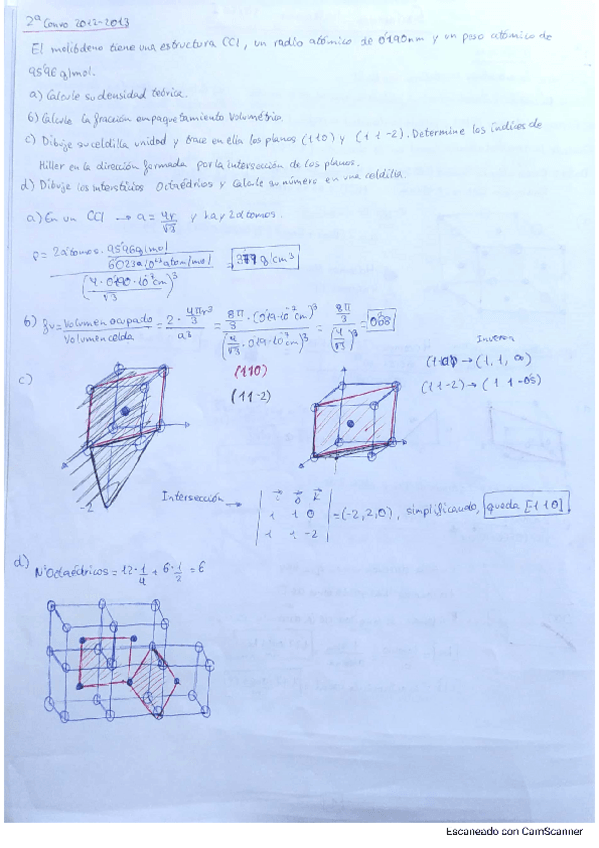 2ª Convo 2012-2013
El molibdeno tiene una estructura CCI, un radio atómico de 0'190nm y un peso atómico de
95'96 g/mol.
a) Calcule su densidad teórica.
b) Calcule la fracción empaquetamiento volumétrico.
c) Dibuje su celdilla unidad y trace en ella los planos (110) y (1 1 -2). Determine los índices de
Miller en la dirección formada por la intersección de los planos.
d) Dibuje los intersticios Octaédricos y Calcule su número en una celdilla.
a) En un CCI → a = 4r/√3 y hay 2 átomos.
ρ = 2 átomos · 95'96 g/mol / 6'023·10²³ atom/mol / (4·0'190·10⁻⁷cm/√3)³ = g/cm³
b) fv = Volumen ocupado/Volumen celda = 2 · 4πr³/3 / a³ = 8π/3 · (0'19·10⁻⁷cm)³ / (4/√3 · 0'19·10⁻⁷cm)³ = 8π/3 / (4/√3)³ = 0'68
(110)
(11-2)
→ (1, 1, ∞)
(1 1 -2) → (1 1 -0'5)
c)
-2
Intersección → | i j k | 1 1 0 | 1 1 -2 | = (-2, 2, 0), simplificando, queda [-1 1 0]
d) NºOctaédricos = 12·1/4 + 6·1/2 = 6
Escaneado con CamScanner